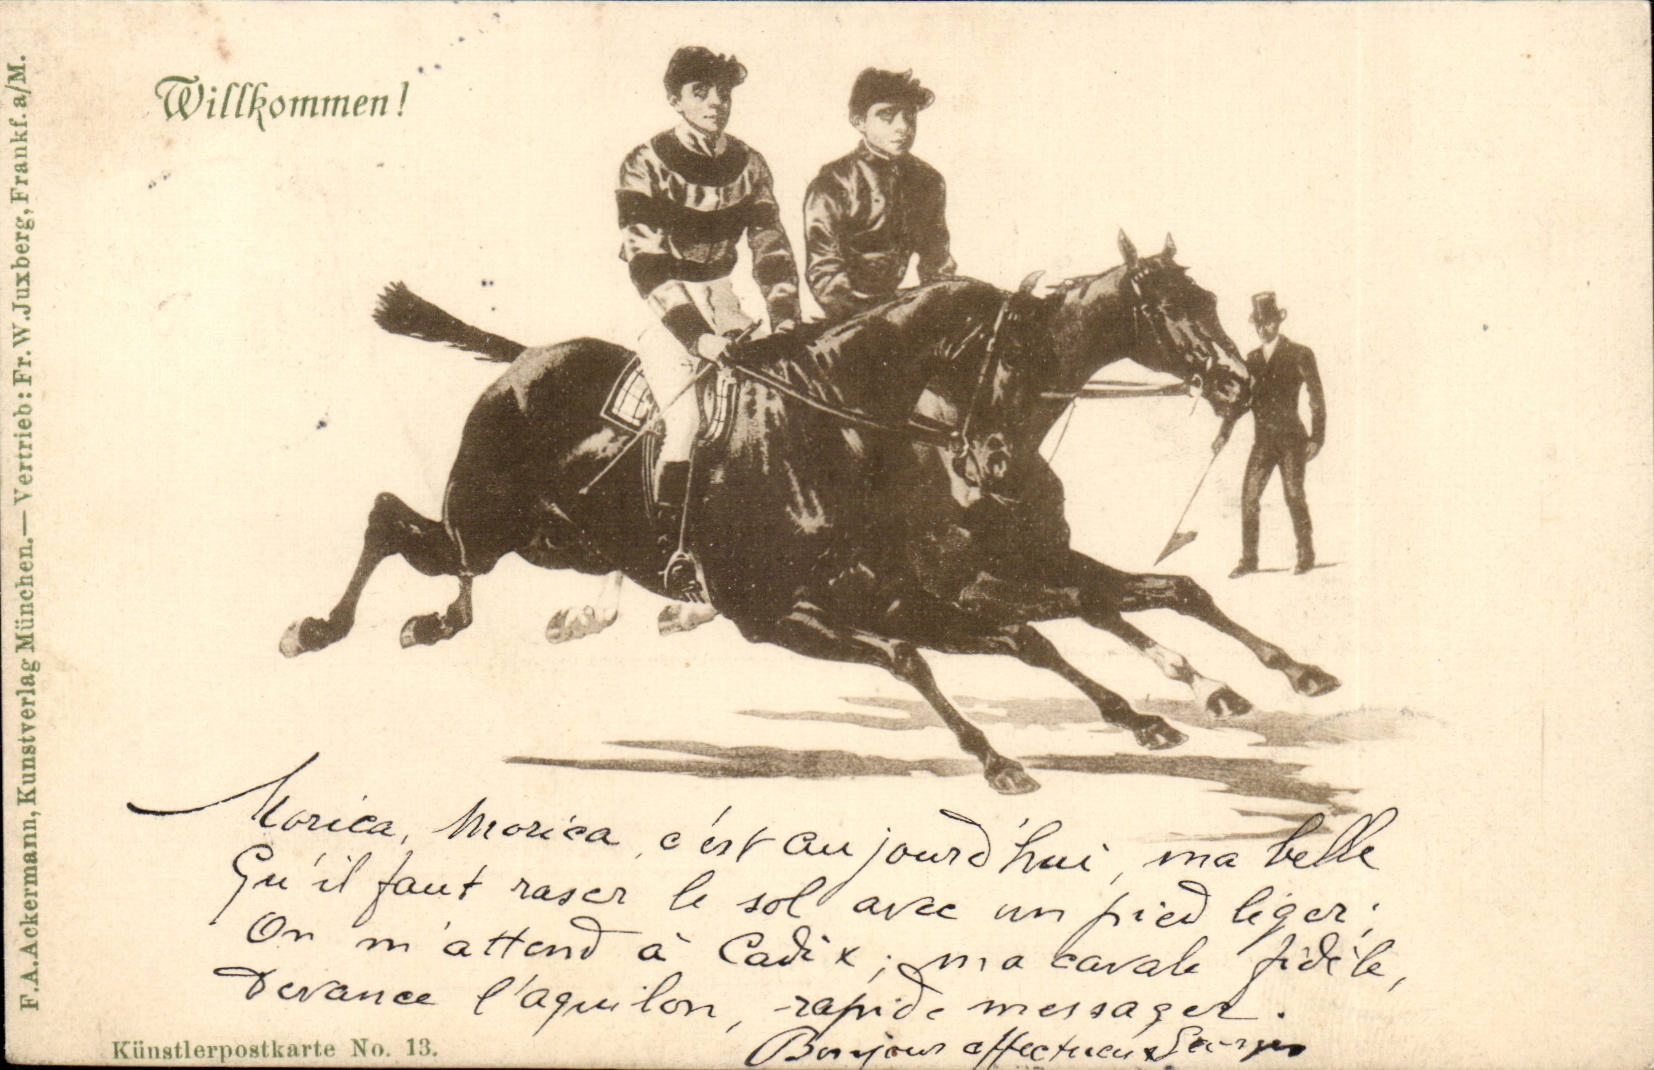 Willkommen!
F. A. Ackermann, Kunstverlag München.— Vertrieb: Fr. W. Juxberg, Frankf. a/M.
Morica, Morica, c'est aujourd'hui, ma belle
Qu'il faut raser le sol avec un pied léger;
On m'attend à Cadix; ma cavale fidèle,
Devance l'aquilon, rapide messager.
Bonjour affectueux Georges
Künstlerpostkarte No. 13.